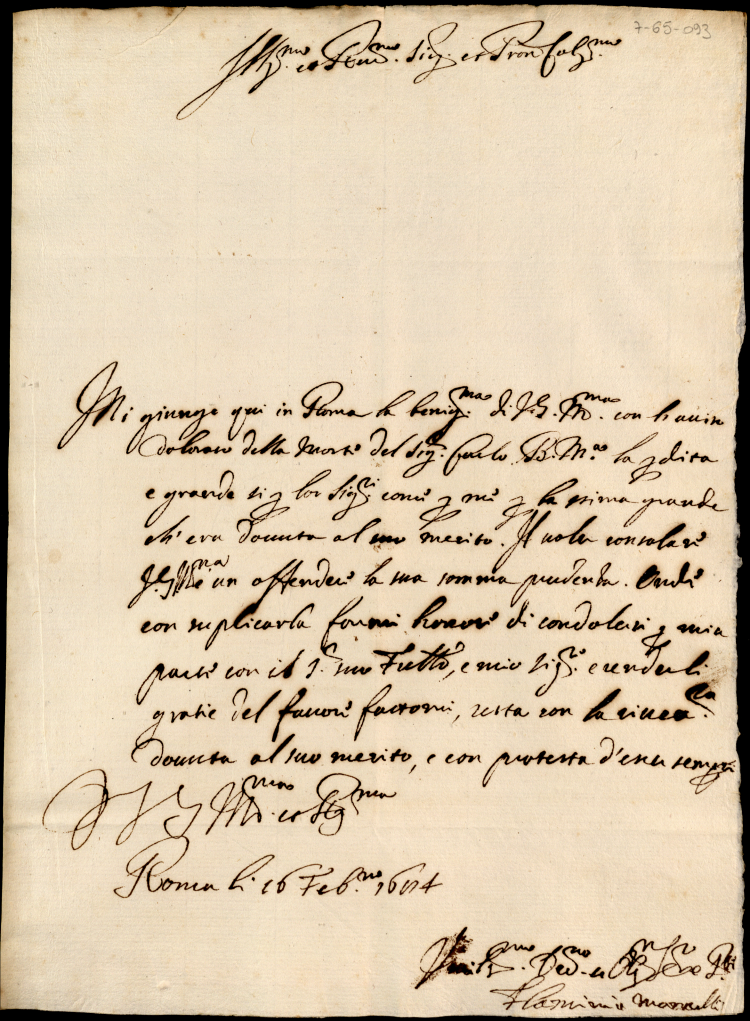 7-65-093
Ill.mo et Rev.mo Sig. et Pron Col.mo
Mi giunge qui in Roma la benig.ma di V.S. Ill.ma con l'auiso
doloroso della Morte del Sig. Carlo B. M.a la p dita
e grande si p lor Sig.ri come p me p la stima grande
ch'era douuta al suo merito. Il uoler consolare
V.S. Ill.ma è un offendere la sua somma prudenza. Onde
con suplicarla farmi honore di condolersi p mia
parte con il S.r suo Fratello, e mio Sig.re e renderli
gratie del fauore fattomi, resta con la riuer.za
douuta al suo merito, e con protesta d'esser sempre
D V S Ill.ma et R.ma
Roma li 16 Feb.ro
Humil.mo Deu.mo et Obl.mo Ser.re
Flaminio